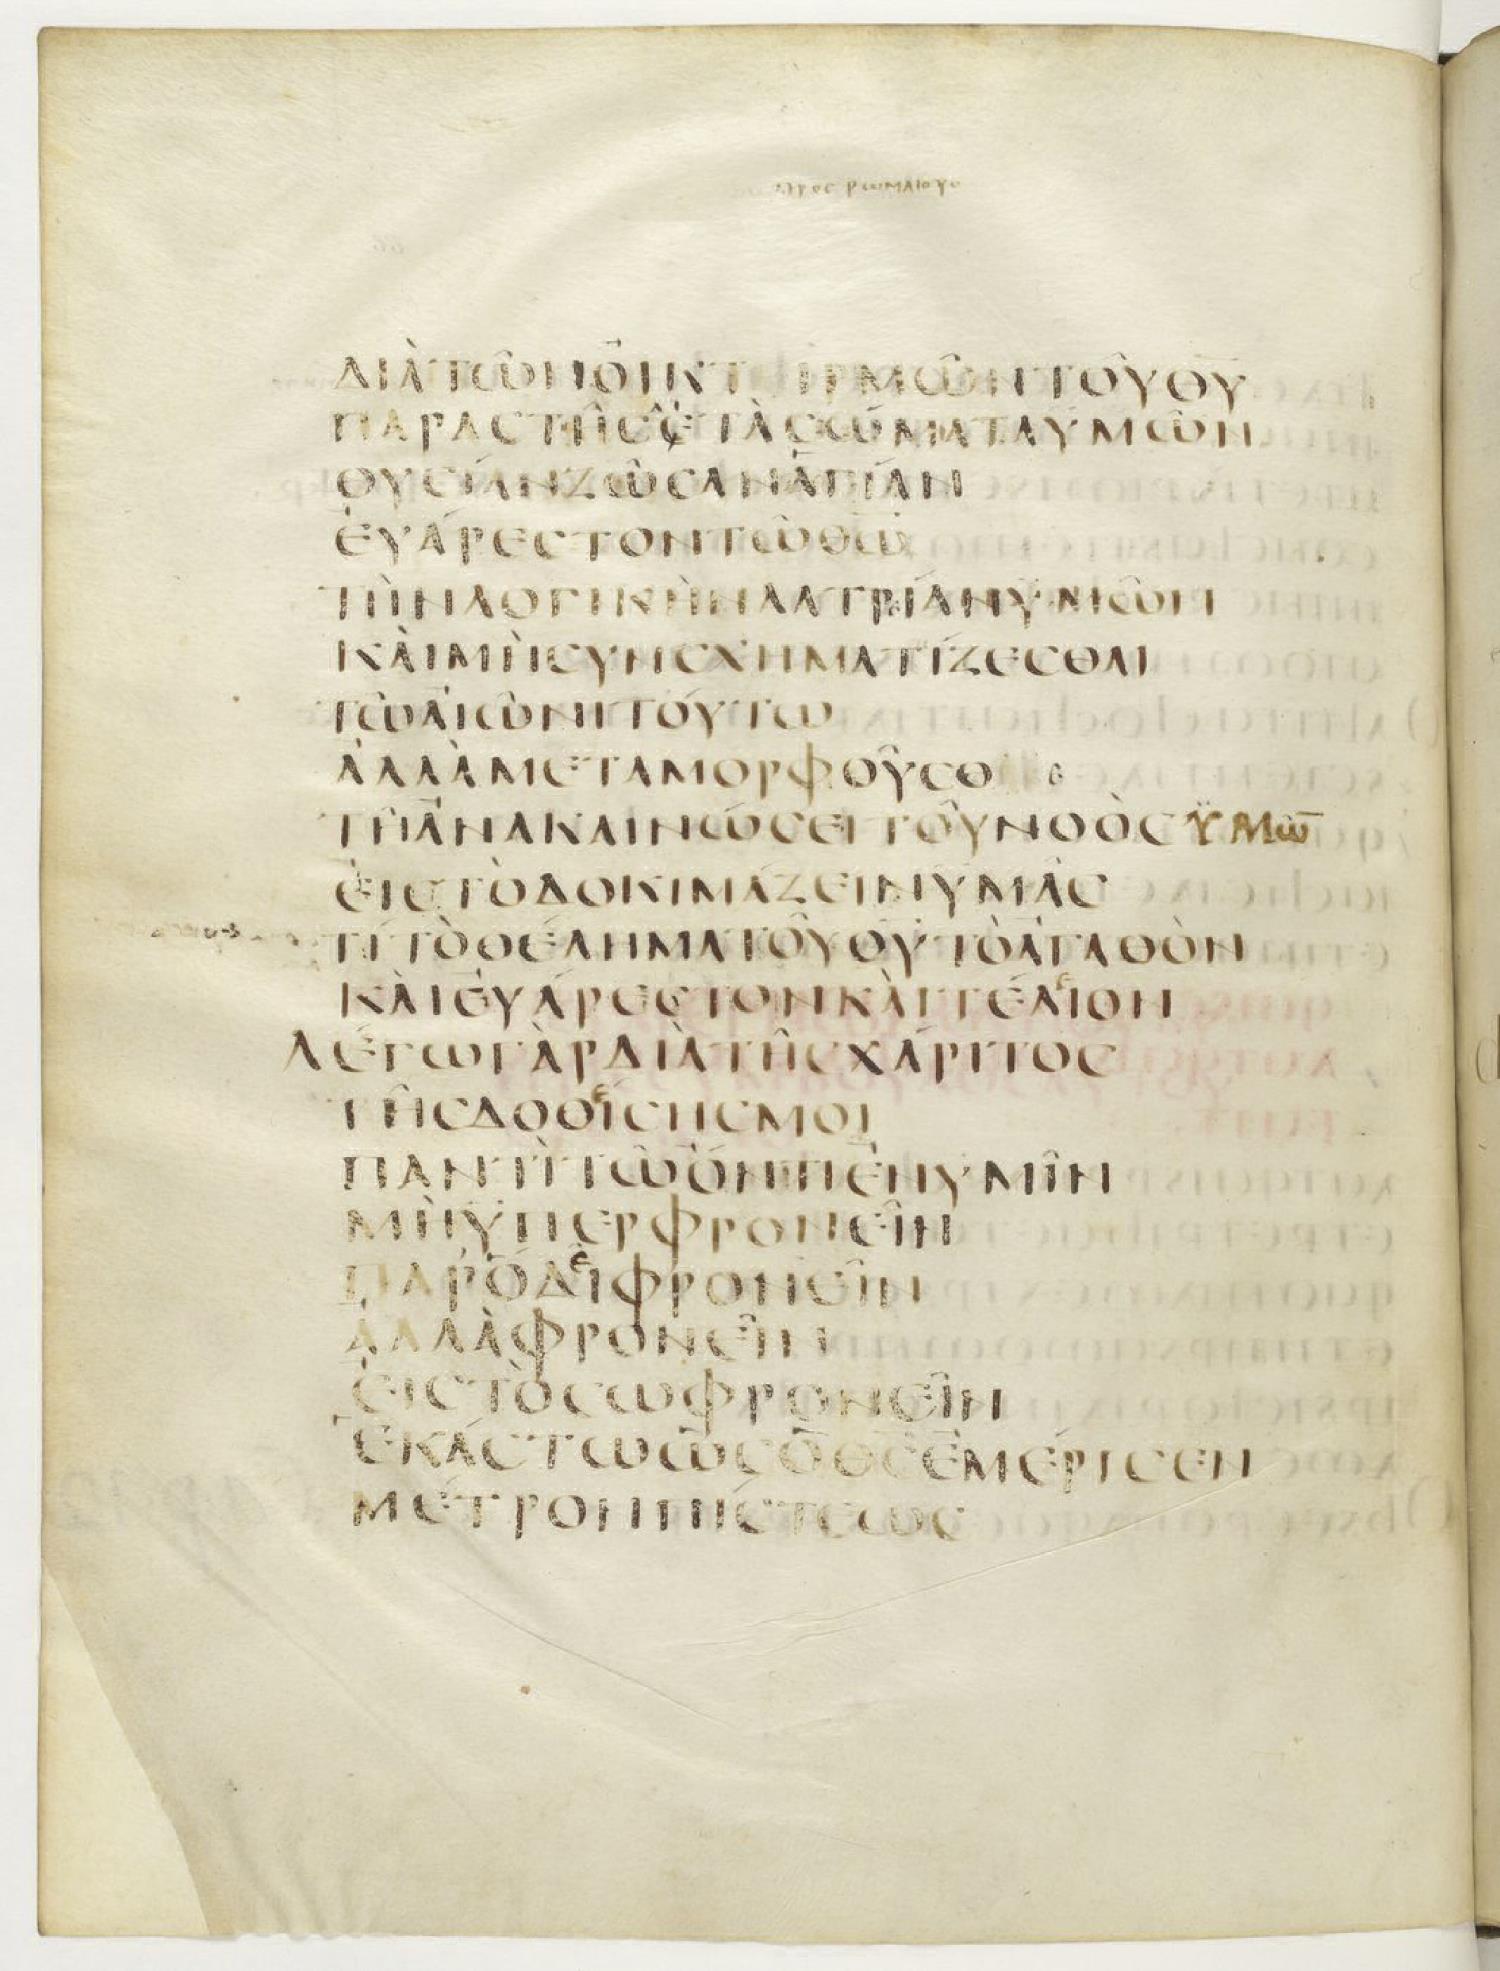 προς ρωμαιουσ
ΔΙᾺΤΩ͂ΝΟἸΚΤΙΡΜΩ͂ΝΤΟΥ͂ΘΥ
ΠΑΡΑΣΤΗ͂ΣΕΤᾺΣΏΜΑΤΑΥΜΩ͂Ν
ΘΥΣΊΑΝΖΩ͂ΣΑΝἉΓΊΑΝ
ἘΥΆΡΕΣΤΟΝΤΩ͂ΘΩ
ΤῊΝΛΟΓΙΚῊΝΛΑΤΡΊΑΝΥΜΩ͂Ν
ΚᾺΙΜῊΣΥΝΣΧΗΜΑΤΊΖΕΣΘΑΙ
ΤΩ͂ΑἸΩ͂ΝΙΤΟΎΤΩ
ἈΛΛᾺΜΕΤΑΜΟΡΦΟΥ͂ΣΘΕ
ΤΗ͂ἈΝΑΚΑΙΝΏΣΕΙΤΟΥ͂ΝΟῸΣΫΜΩ̅
ἘΙΣΤῸΔΟΚΙΜΆΖΕΙΝΥΜΑ͂Σ
ΤΊΤῸΘΈΛΗΜΑΤΟΥ͂ΘΥΤῸἈΓΑΘῸΝ
ΚᾺΙΕΥΆΡΕΣΤΟΝΚᾺΙΤΈΛεΙΟΝ
ΛΈΓΩΓᾺΡΔΙᾺΤΗ͂ΣΧΆΡΙΤΟΣ
ΤΗ͂ΣΔΟΘεΊΣΗΣΜΟΙ
ΠΑΝΤῚΤΩ͂ὌΝΤΙἘΝΥΜΙ͂Ν
ΜῊΥΠΕΡΦΡΟΝΕΙ͂Ν
ΠΑΡΌΔεΙΦΡΟΝΕΙ͂Ν
ἈΛΛᾺΦΡΟΝΕΙ͂Ν
ἘΙΣΤῸΣΩΦΡΟΝΕΙ͂Ν
ἙΚΆΣΤΩΩΣὉΘΣἘΜΈΡΙΣΕΝ
ΜΈΤΡΟΝΠΊΣΤΕΩΣ